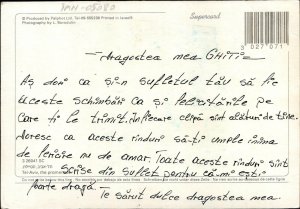 JAN-05080
© Produced by Palphot Ltd. Tel-09-509208 Printed in Israel®
Photography by L. Borodulin
Supercard
3 027071
Dragostea mea GHIȚĂ
Aș dori ca și-n sufletul tău să fie
aceste schimbări ca și felicitările pe
care ți le trimit, în fiecare clipă sînt alături de tine.
Doresc ca aceste rînduri să-ți umple inima
de fericire nu de amar. Toate aceste rînduri sînt
scrise din suflet pentru că-mi ești
foarte dragă. — Te sărut dulce dragostea mea
D 26841 BC
Tel-Aviv, the promenade